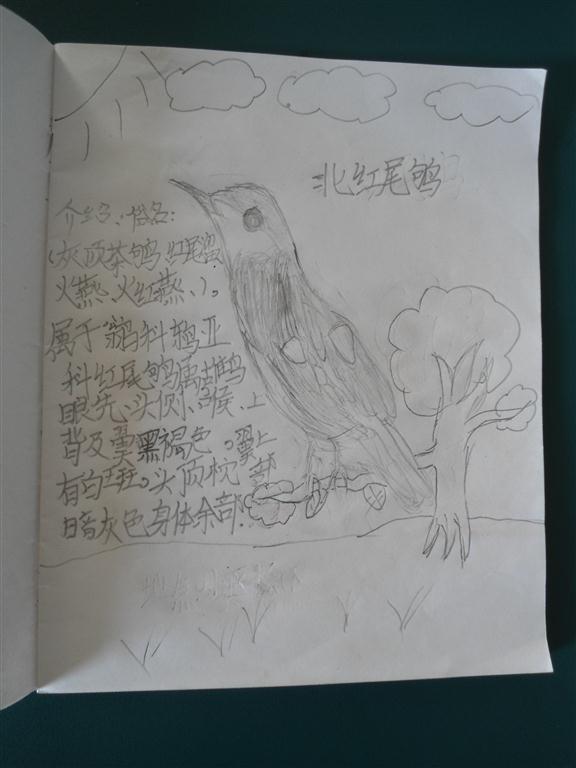 北红尾鸲
介绍、俗名:
(灰顶茶鸲 红尾
火燕、火红燕、)。
属于鹟科鸫亚
科红尾鸲属
眼先、头侧、喉、上
背及翼黑褐色。翼上
有白斑。头顶枕部
暗灰色身体余部